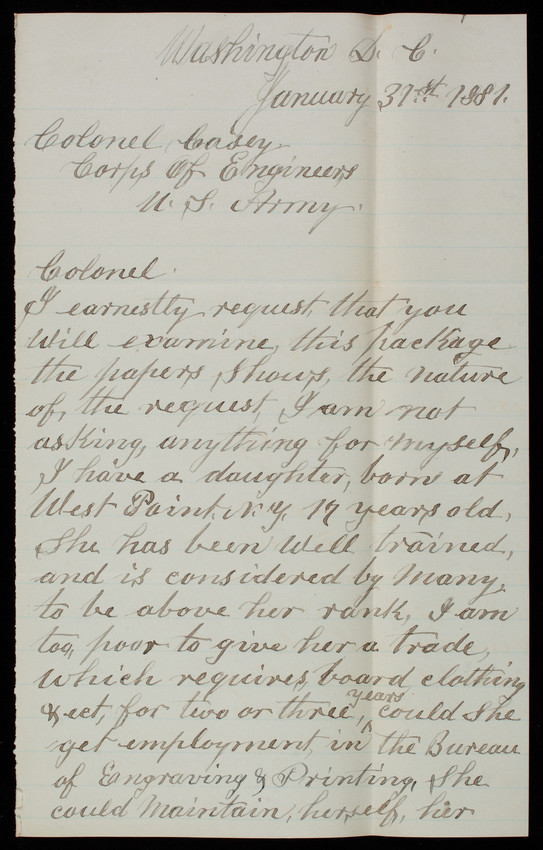 Washington D. C.
January 31st 1881.
Colonel Casey
Corps Of Engineers
U. S. Army.
Colonel.
I earnestly request, that you
Will examine, this package
the papers, Shows, the nature
of, the request, I am not
asKing, anything for myself,
I have a daughter, born at
West Point, N. Y. 17 years old,
She has been Well trained,
and is considered by Many,
to be above her rank, I am
too, poor to give her a trade,
Which requires, board clothing
& ect, for two or three years, could She
get employment, in the Bureau
of Engraving & Printing, She
could Maintain, herself, her